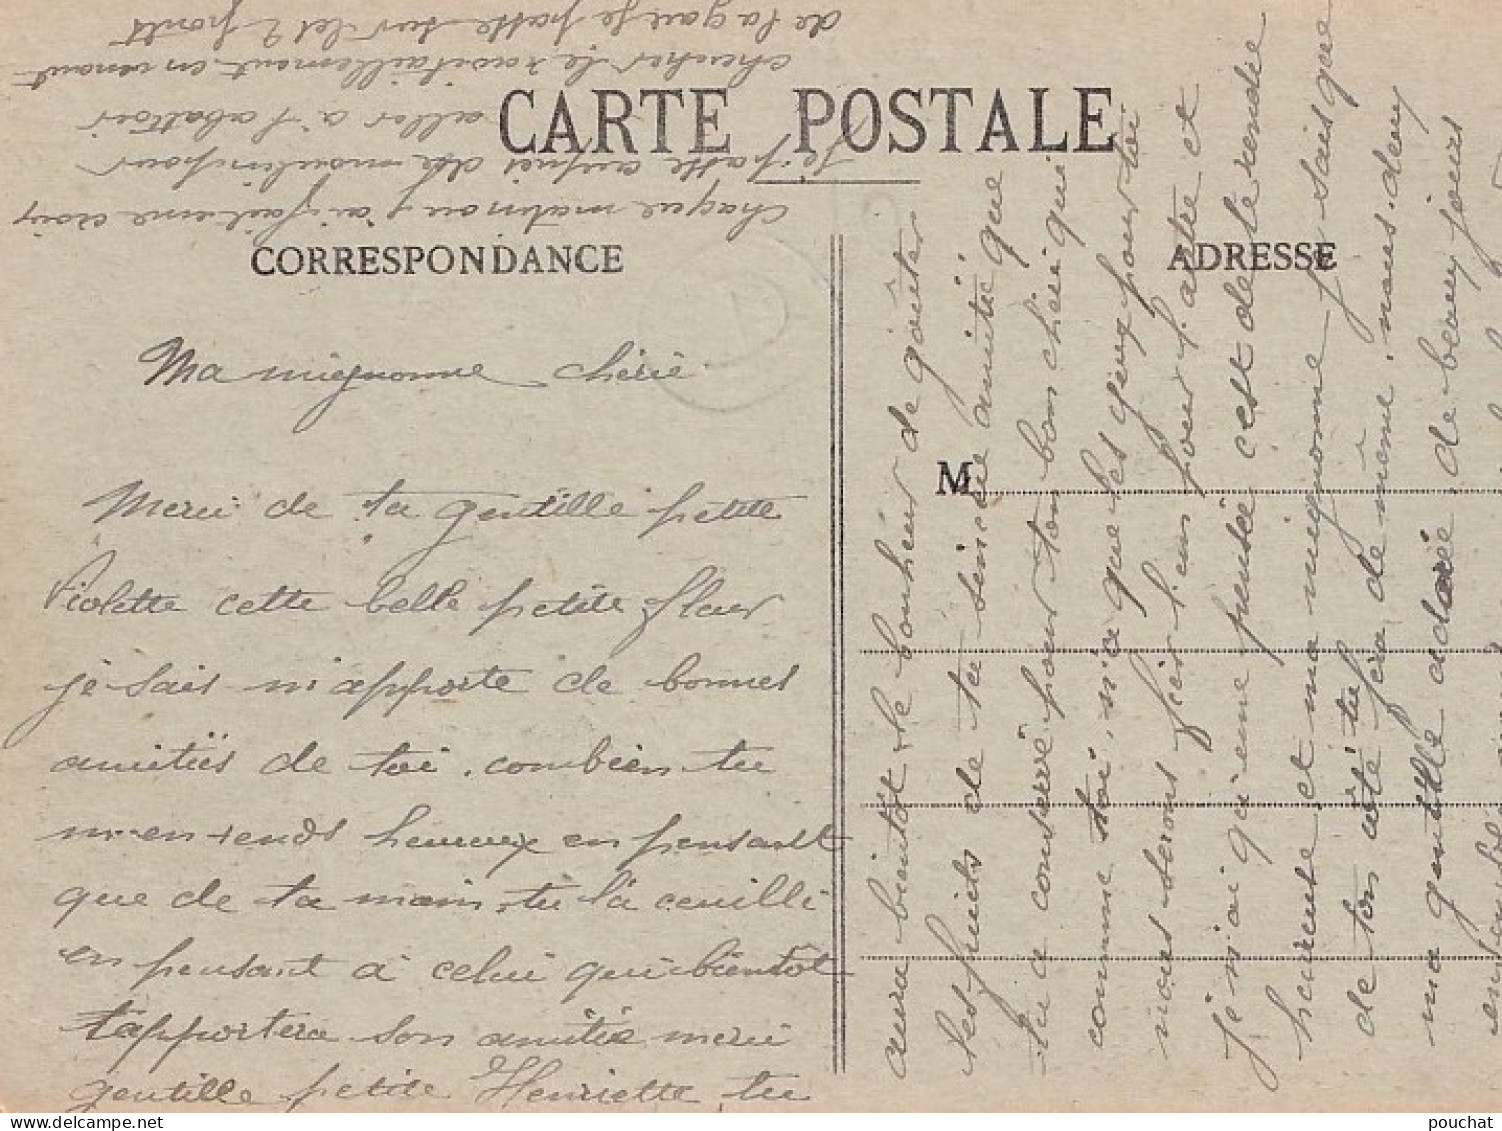 CARTE POSTALE
CORRESPONDANCE
ADRESSE
M
Ma mignonne chérie
Merci de ta gentille petite
Violette cette belle petite fleur
je sais m'apporte de bonnes
amitiés de toi, combien tu
m'en rends heureux en pensant
que de ta main, tu là ceuilli
en pensant à celui qui bientôt
t'apportera son amitié merci
gentille petite Henriette, tu
aura bientôt le bonheur de goûter
les fruits de ta sincère amitié que
tu a conservé pour ton bon chéri qui
comme toi, n'a que les yeux pour toi
nous serons fier l'un pour l'autre et
je n'ai qu'une pensée c'est de te rendre
heureuse, et ma mignonne je sais que
de ton côté tu fera de même, nous deux
ma gentille adorée, de beaux jours
chaque matin ou j'ai fait une croix
je passe auprès du moulin pour
aller à l'abattoir
chercher le ravitaillement en venant
de la gare je passe sur les 2 ponts
pouchat